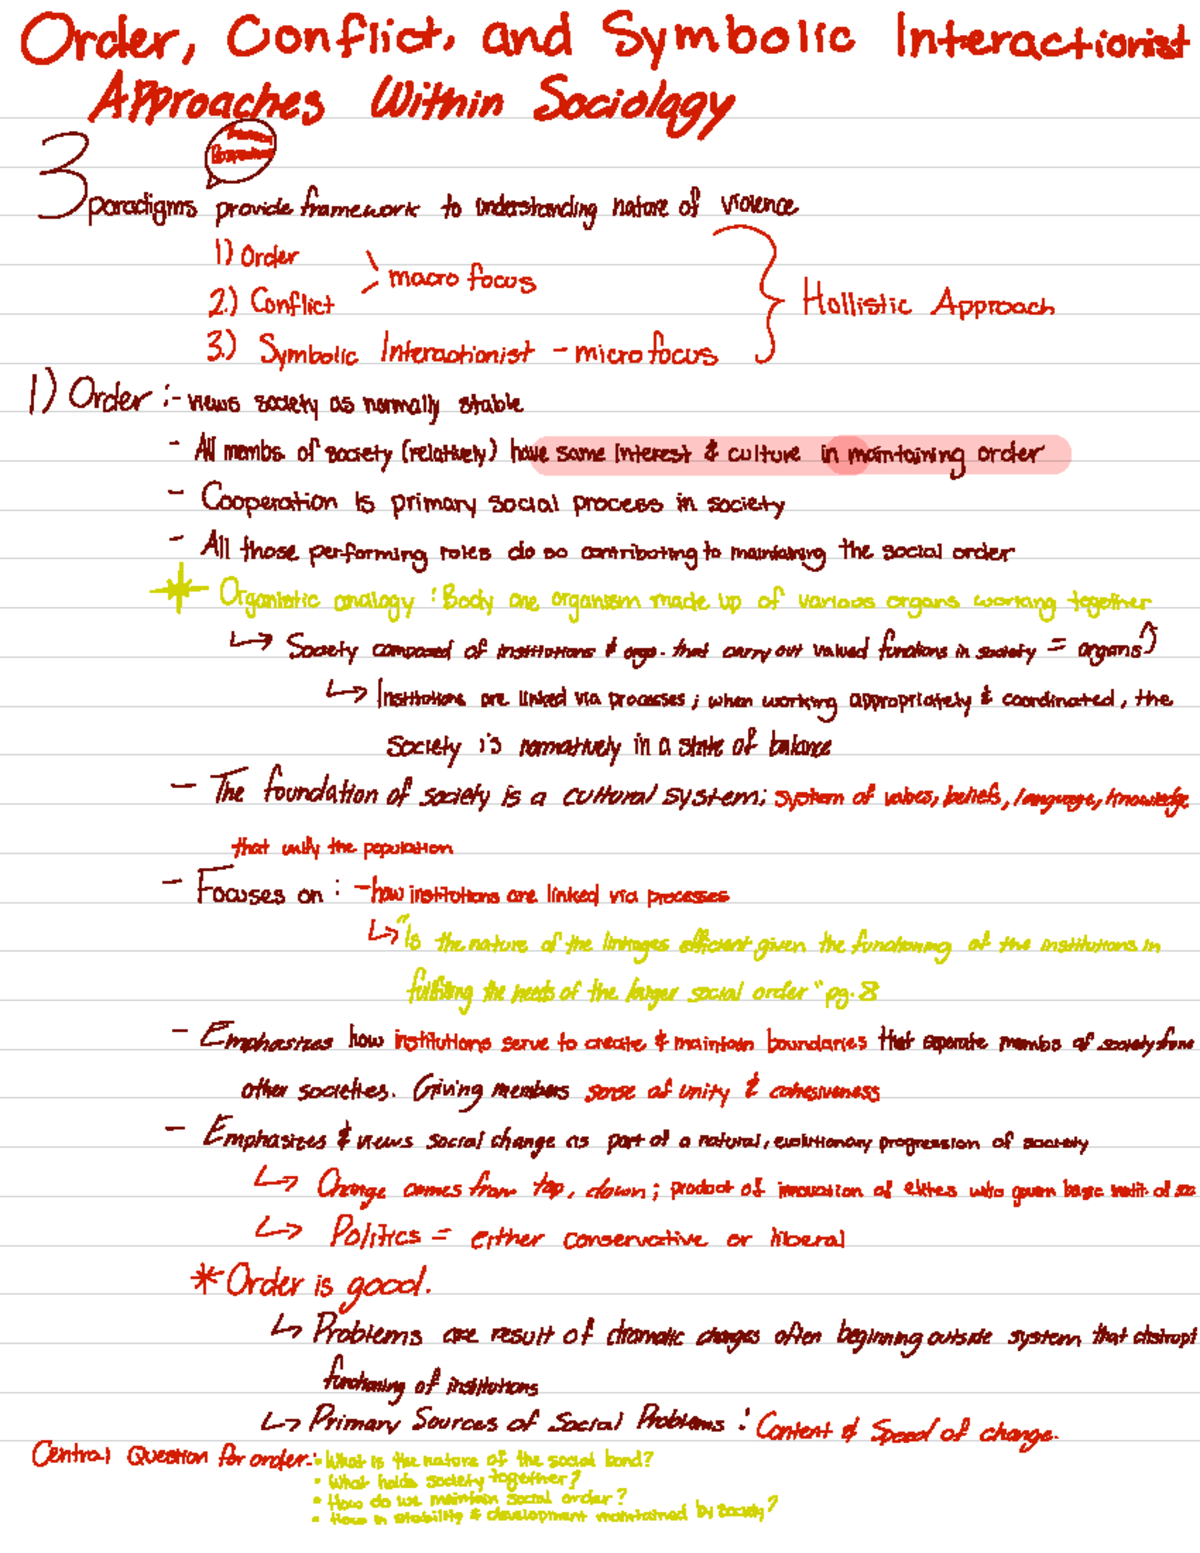 Order, Conflict, and Symbolic Interactionist
Approaches Within Sociology
3 paradigms provide framework to understanding nature of violence
1) Order
macro focus
2.) Conflict
3.) Symbolic Interactionist - micro focus
Hollistic Approach
1) Order :- views society as normally stable
- All membs. of society (relatively) have same interest & culture in maintaining order
- Cooperation is primary social process in society
- All those performing roles do so contributing to maintaining the social order
Organistic analogy : Body one organism made up of various organs working together
↳ Society composed of institutions & orgs. that carry out valued functions in society = organs
↳ Institutions are linked via processes ; when working appropriately & coordinated, the
society is normatively in a state of balance
- The foundation of society is a cultural system; system of values, beliefs, language, knowledge
that unify the population
- Focuses on : - how institutions are linked via processes
↳ "Is the nature of the linkages efficient given the functioning of the institutions in
fulfilling the needs of the larger social order" pg. 8
- Emphasizes how institutions serve to create & maintain boundaries that seperate membs of society from
other societies. Giving members sense of unity & cohesiveness
- Emphasizes & views social change as part of a natural, evolutionary progression of society
↳ Change comes from top, down; product of innovation of elites who govern basic instit. of soc
↳ Politics = either conservative or liberal
* Order is good.
↳ Problems are result of dramatic changes often beginning outside system that distrupt
functioning of institutions
↳ Primary Sources of Social Problems : Content & Speed of change.
Central Question for order: • What is the nature of the social bond?
• What holds society together?
• How do we maintain social order?
• How is stability & development maintained by society?